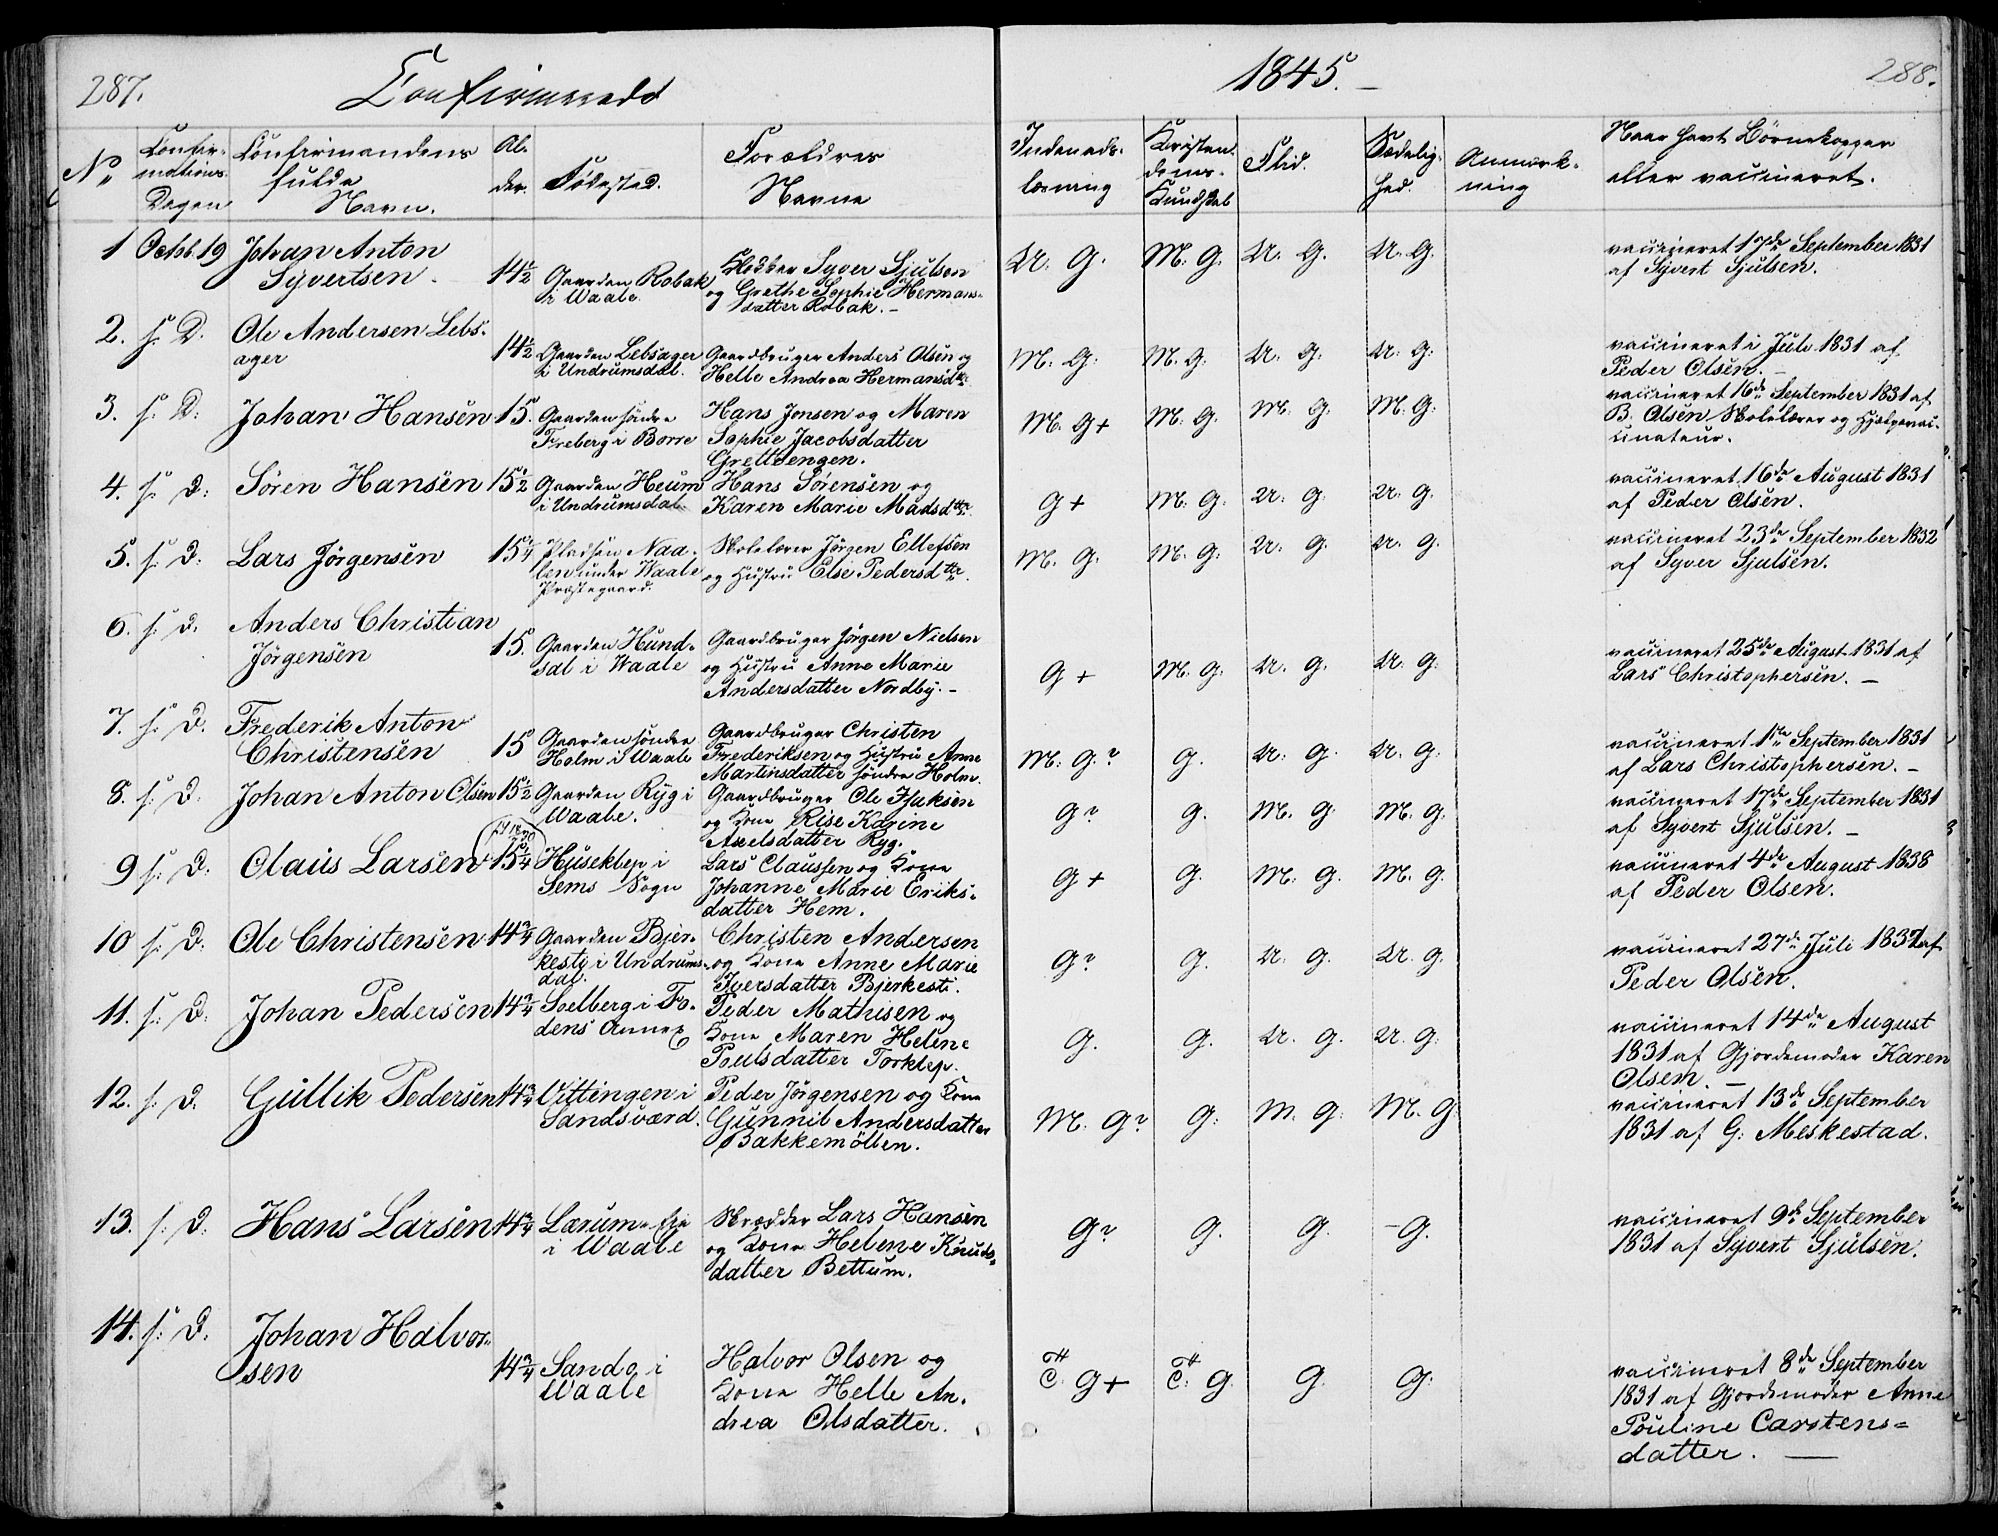 287.
Confirmerede
1845.
288.
No
Confir-
mations-
Dagen
Confirmandens
fulde
Navn.
Al-
der.
Födested.
Forældres
Navne
Indenads-
læsning
Kristen-
doms-
Kundskab
Flid.
Sædelig-
hed.
Anmærk-
ning
Naar havt Börnekopper
eller vaccineret.
1 Octob. 19 Johan Anton
Syvertsen.
14½ Gaarden Robak
i Waale.
Klokker Syver Sjulsen
og Grethe Sophie Hermans-
datter Robak. -
U. G. M: G. U. G. U. G.
vaccineret 17de September 1831
af Syvert Sjulsen.
2. s. D. Ole Andersen Lebs-
ager
14½ Gaarden Lebsager
i Undrumsdal.
Gaardbruger Anders Olsen og
Helle Andrea Hermansdtr
M. G: M. G: U. G. U. G:
vaccineret i Juli 1831 af
Peder Olsen. -
3. s. D: Johan Hansen 15. Gaarden söndre
Freberg i Borre
Hans Jonsen og Maren
Sophie Jacobsdatter
Grettoengen.
M. G+ M: G. M: G. M: G:
vaccineret 16de September 1831 af
B. Olsen Skolelærer og Hjælpevac-
cinateur.
4. s. D: Sören Hansen 15½ Gaarden Heum
i Undrumsdal.
Hans Sörensen og
Karen Marie Madsdttr
G+ M: G. U. G: U. G.
vaccineret 16de August 1831
af Peder Olsen.
5. s. D: Lars Jörgensen 15¼ Pladsen Naa-
len under Waale
Præstegaard.
Skolelærer Jörgen Ellefsen
og Hustru Else Pedersdttr.
M. G. M: G: U: G. U. G.
vaccineret 23de September 1832
af Syver Sjulsen.
6. s. D. Anders Christian
Jörgensen
15. Gaarden Hund-
sal i Waale
Gaardbruger Jörgen Nielsen
og Hustru Anne Marie
Andersdatter Nordby. -
G+ M: G. U. G. U. G:
vaccineret 25de August 1831 af
Lars Christophersen. -
7. s. D: Frederik Anton
Christensen
15 Gaarden söndre
Holm i Waale
Gaardbruger Christen
Frederiksen og Hustru Anne
Martinsdatter söndre Holm.
M: G.? G. U: G. U. G:
vaccineret 1ste September 1831
af Lars Christophersen. -
8. s. D. Johan Anton Olsen 15½ Gaarden Ryg i
Waale.
Gaardbruger Ole Isaksen
og Kone Rise Karine
Axelsdatter Ryg.
G? G. M. G: M. G.
vaccineret 17de September 1831
af Syvert Sjulsen. -
9 s. D. Olaus Larsen 15¼ Huseklep i
Sems Sogn
Lars Claussen og Kone
Johanne Marie Eriks-
datter Hem.
G+ G. M: G. M. G.
vaccineret 4de August 1838
af Peder Olsen.
10 s. D: Ole Christensen 14¾ Gaarden Bjer-
kesty i Undrums-
dal.
Christen Andersen
og Kone Anne Marie
Iversdatter Bjerkesti.
G? G. U. G. U. G.
vaccineret 27de Juli 1837 af
Peder Olsen.
11. s: D: Johan Pedersen 14¾ Solberg i Fo-
dens Annex
Peder Mathisen og
Kone Maren Helene
Poulsdatter Torklep.
G. G. U. G. U. G:
vaccineret 14de August
1831 af Gjordemoder Karen
Olsen. -
12. s. D. Gullik Pedersen 14¾ Vittingen i
Sandsværd.
Peder Jörgensen og Kone
Gunnil Andersdatter
Bakkemöllen.
M. G? G: M: G: M. G.
vaccineret 13de September
1831 af G: Meskestad.
13. s. D: Hans Larsen 14¾ Lærum
i Waale
Skrædder Lars Hansen
og Kone Helene Knuds-
datter Bettum.
G? G. G. -G.
vaccineret 9de September
1831 af Syvert Sjulsen.
14. s: D. Johan Halvor-
sen
14¾ Sando i
Waale
Halvor Olsen og
Kone Helle An-
drea Olsdatter.
G+ G. G. G:
vaccineret 8de September
1831 af Gjordemoder Anne
Pouline Carstens=
datter. -